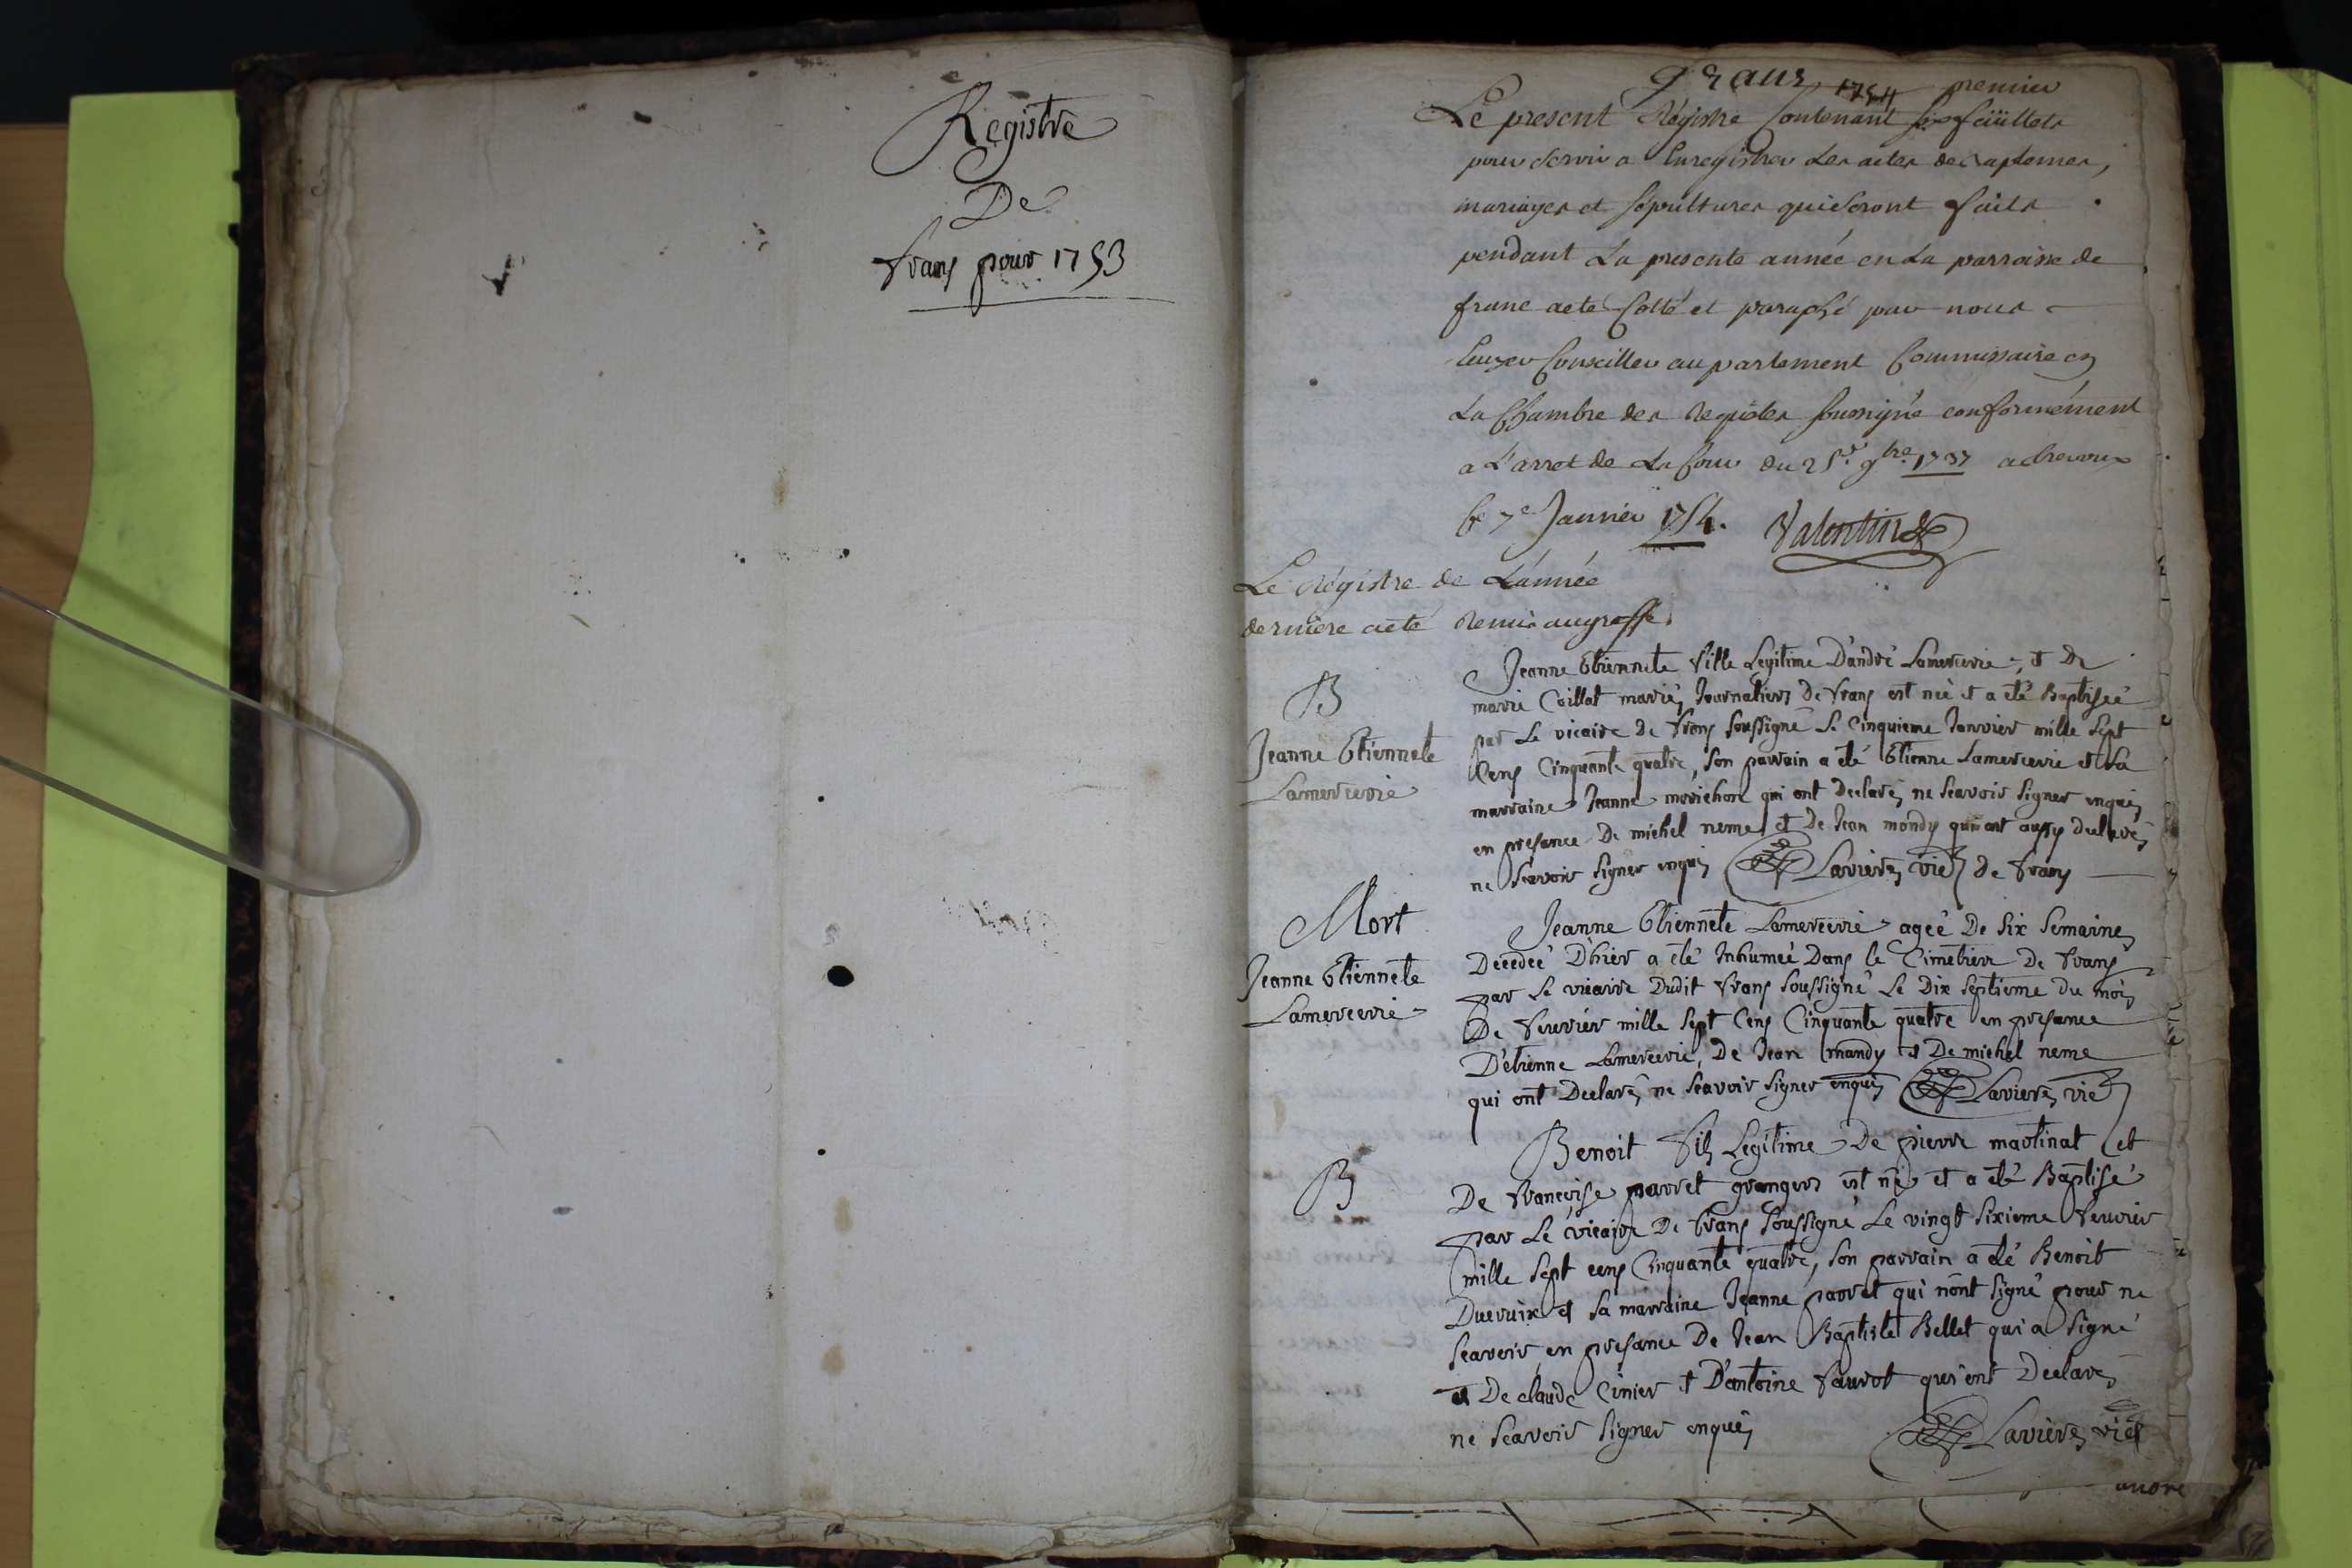 Registre
De
frans pour 1753
frans 1754 premier
Le present Régistre Contenant six feüillets
pour servir a Enregistrer les actes de Baptemes,
mariages et sépultures qui seront faits
pendant La presente année en La parroisse de
frane a eté Cotté et paraphé par nous
Conseiller au parlement Commissaire en
La Chambre des Requetes soussigné conformément
a L'arret de La Cour du 25e 9bre 1737 a Trevoux
Ce 7e Janvier 1754. Valentin
Le Régistre de L'année
derniere a eté Remis au greffe.
B
Jeanne Etiennete
Lamercerie
Jeanne Etiennete fille Legitime D'andré Lamercerie, et De
marie Coillat mariés Journaliers De frans est neé et a eté Baptiseé
par Le vicaire de frans soussigné Le Cinquieme Janvier mille sept
Cens Cinquante quatre, son parrain a eté Etienne Lamercerie et La
marraine Jeanne morichon qui ont declarés ne sçavoir signer enquis
en presance De michel neme et De Jean mandy qui ont aussy declarés
ne sçavoir signer enquis Lavieres vic de frans
Mort
Jeanne Etiennete
Lamercerie
Jeanne Etiennete Lamercerie ageé De six semaines
Decedeé D'hier a eté Inhumeé Dans le Cimetiere De frans
par Le vicaire Dudit frans soussigné Le Dix septieme du mois
De fevrier mille sept Cens Cinquante quatre en presance
D'etienne Lamercerie, De Jean mandy et De michel neme
qui ont Declarés ne sçavoir signer enquis Lavieres vic
B
Benoit fils Legitime De pierre martinat et
De francoise parret grangers est né et a eté Baptisé
par Le vicaire De frans soussigné Le vingt sixieme fevrier
mille sept cens Cinquante quatre, son parrain a eté Benoit
Ducruix et sa marraine Jeanne parret qui n'ont signé pour ne
sçavoir en presance De Jean Baptiste Bellet qui a signé
et De claude Cinier et D'antoine favrot qui ont Declarés
ne sçavoir signer enquis Lavieres vic
andre